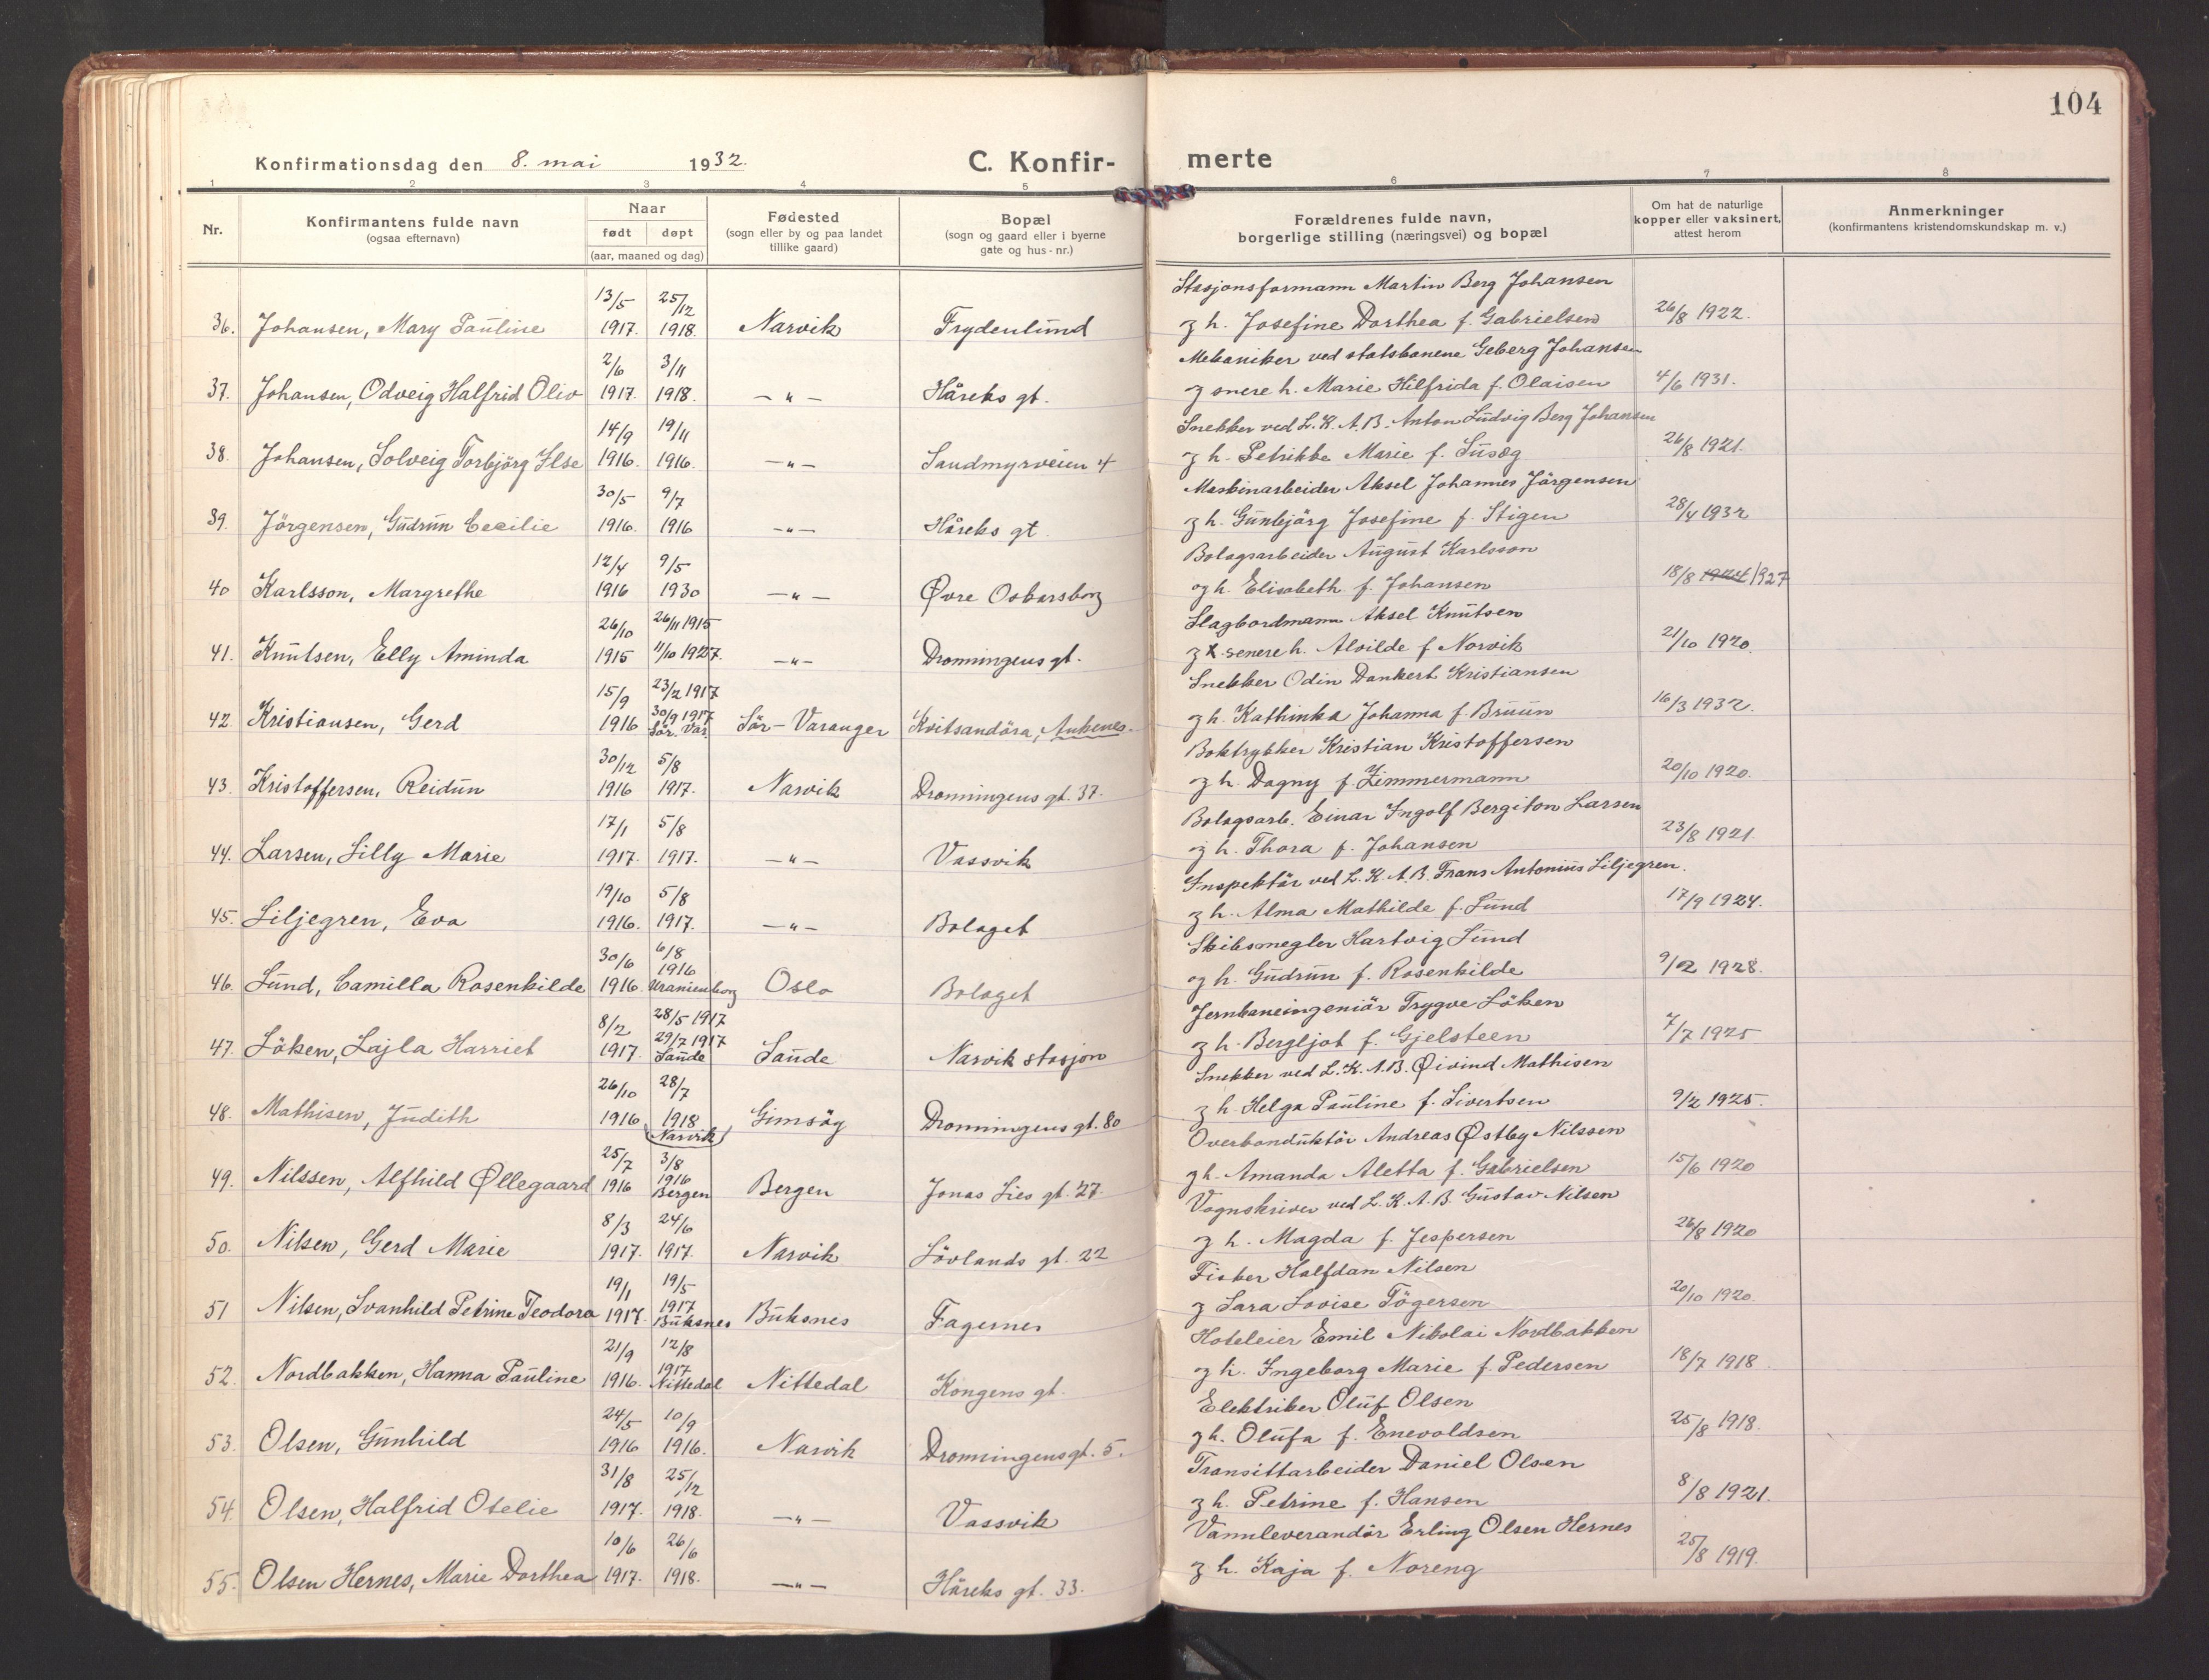 104
Konfirmationsdag den 8. mai 1932. C. Konfirmerte
1 2 3 4 5 6 7 8
Nr.
Konfirmantens fulde navn
(ogsaa efternavn)
Naar
født døpt
(aar, maaned og dag)
Fødested
(sogn eller by og paa landet
tillike gaard)
Bopæl
(sogn og gaard eller i byerne
gate og hus-nr.)
Forældrenes fulde navn,
borgerlige stilling (næringsvei) og bopæl
Om hat de naturlige
kopper eller vaksinert,
attest herom
Anmerkninger
(konfirmantens kristendomskundskap m. v.)
13/5 25/12 Stasjonsformann Martin Berg Johansen
36. Johansen, Mary Pauline 1917. 1918. Narvik Frydenlund og h. Josefine Dorthea f. Gabrielsen 26/8 1922.
2/6 3/11 Mekaniker ved statsbanene Geberg Johansen
37. Johansen, Odveig Halfrid Oliv 1917. 1918. —"— Håreks gt. og snere h. Marie Hilfrida f. Olaisen 4/6 1931.
14/9 19/11 Snekker ved L.K.A.B. Anton Ludvig Berg Johansen
38. Johansen, Solveig Torbjörg Ilse 1916. 1916. —"— Sandmyrveien 4 og h. Petrikke Marie f. Susæg 26/8 1921.
30/5 9/7 Maskinarbeider Aksel Johannes Jörgensen
39. Jörgensen, Gudrun Cecilie 1916. 1916 —"— Håreks gt. og h. Gunbjörg Josefine f. Stigen 28/4 1932
12/4 9/5 Bolagsarbeider August Karlsson
40 Karlsson, Margrethe 1916 1930 —"— Øvre Oskarsborg og h. Elisabeth f. Johansen 18/8 1924 1927
26/10 26/11 1915 Slagbordmann Aksel Knutsen
41. Knutsen, Elly Aminda 1915 11/10 1927. —"— Dronningens gt. og x senere h. Alvilde f Narvik 21/10 1920.
15/9 23/2 1917 Snekker Odin Dankert Kristiansen
42. Kristiansen, Gerd 1916 30/9 1917 Sör. Var. Sör-Varanger Kvitsandöra, Ankenes. og h. Kathinka Johanna f. Bruun 16/3 1932.
30/12 5/8 Boktrykker Kristian Kristoffersen
43. Kristoffersen, Reidun 1916 1917. Narvik Dronningens gt. 37. og h. Dagny f. Zimmermann 20/10 1920.
17/1 5/8 Bolagsarb. Einar Ingolf Bergiton Larsen
44. Larsen, Lilly Marie 1917. 1917. —"— Vassvik og h. Thora f. Johansen 23/8 1921.
19/10 5/8 Inspektör ved L.K.A.B. Frans Antonius Liljegren.
45. Liljegren, Eva 1916. 1917. —"— Bolaget og h. Alma Mathilde f. Lund 17/9 1924.
30/6 6/8 Skibsmegler Hartvig Lund
46. Lund, Camilla Rosenkilde 1916. 1916 Uranienborg Oslo Bolaget og h. Gudrun f. Rosenkilde 9/2 1928.
8/2 28/5 1917 Jernbaneingeniör Trygve Löken
47. Löken, Lajla Harriet 1917. 29/7 1917 Sande Sande Narvik stasjon og h. Bergljot f. Gjelsteen 7/7 1925
26/10 28/7 Snekker ved L.K.A.B. Øivind Mathisen
48. Mathisen, Judith 1916 1918 (Narvik) Gimsöy Dronningens gt. 80 og h. Helga Pauline f. Sivertsen 9/2 1925.
25/7 3/8 Overkonduktör Andreas Østby Nilssen
49. Nilssen, Alfhild Øllegaard 1916 1916 Bergen Bergen Jonas Lies gt. 27. og h. Amanda Aletta f. Gabrielsen 15/6 1920
8/3 24/6 Vognskriver ved L.K.A.B. Gustav Nilsen
50. Nilsen, Gerd Marie 1917. 1917. Narvik Lövlands gt. 22 og h. Magda f. Jespersen 26/8 1920
19/1 19/5 Fisker Halfdan Nilsen
51 Nilsen, Svanhild Petrine Teodora 1917. 1917 Buksnes Buksnes Fagernes og Sara Lovise Tögersen 20/10 1920.
21/9 12/8 Hoteleier Emil Nikolai Nordbakken
52. Nordbakken, Hanna Pauline 1916. 1917 Nittedal Nittedal Kongens gt. og h. Ingeborg Marie f. Pedersen 18/7 1918
24/5 10/9 Elektriker Oluf Olsen
53. Olsen, Gunhild 1916 1916. Narvik Dronningens gt. 5. og h. Olufa f. Enevoldsen 25/8 1918.
31/8 25/12 Transittarbeider Daniel Olsen
54. Olsen, Halfrid Otelie 1917. 1918. —"— Vassvik og h. Petrine f. Hansen 8/8 1921.
10/6 26/6 Vannleverandör Erling Olsen Hernes
55. Olsen Hernes, Marie Dorthea 1917. 1918. —"— Håreks gt. 33. og h. Kaja f. Noreng 25/8 1919.